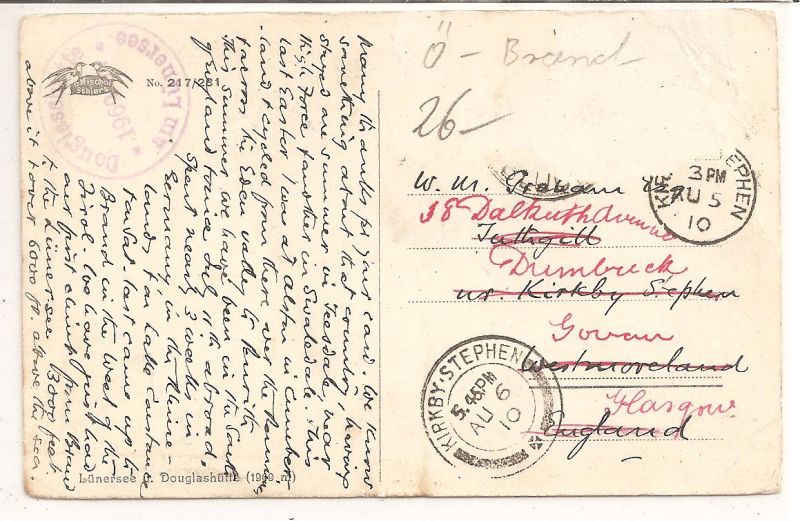 Many thanks for your card. We know
something about that country, having
stayed one summer in Teesdale, near
High Force & another in Swaledale. This
last Easter I was at Alston in Cumber-
land & cycled from there over the
across the Eden valley to Penrith
This summer we have been in the South
of England & since July 11th abroad,
Spent nearly 3 weeks in
Germany, in the Rhine-
lands & on Lake Constance
So far. last came up to
Brand in the West of the
Tirol. We have just had
our first climb from Brand
to the Lünersee
above it & over 6000 ft above the sea.
Mischol
Schiers
No. 217/281
Douglas
am Lünersee
1969
Lünersee u. Douglashütte (1969 m)
Ö - Brand
26-
W. M. Graham Esq
38 Dalkeith Avenue
Tuthgill
Dumbreck
nr. Kirkby Stephen
Govan
Westmoreland
Glasgow
England
3 PM
AU 5
10
EPHEN
KIRKBY-STEPHEN
5.45PM
AU 6
10